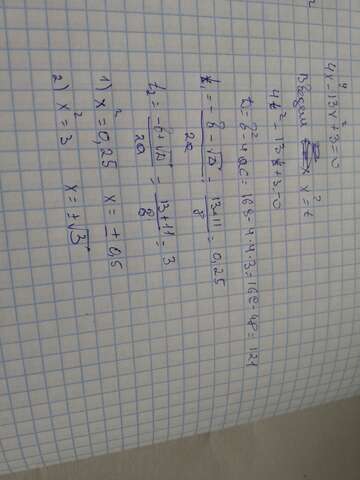 4x⁴-13x²+3=0
Введём x²=t
4t²-13t+3=0
D=b²-4ac=169-4·4·3=169-48=121
t₁=-b-√D/2a=13-11/8=0,25
t₂=-b+√D/2a=13+11/8=3
1) x²=0,25 x=±0,5
2) x²=3 x=±√3